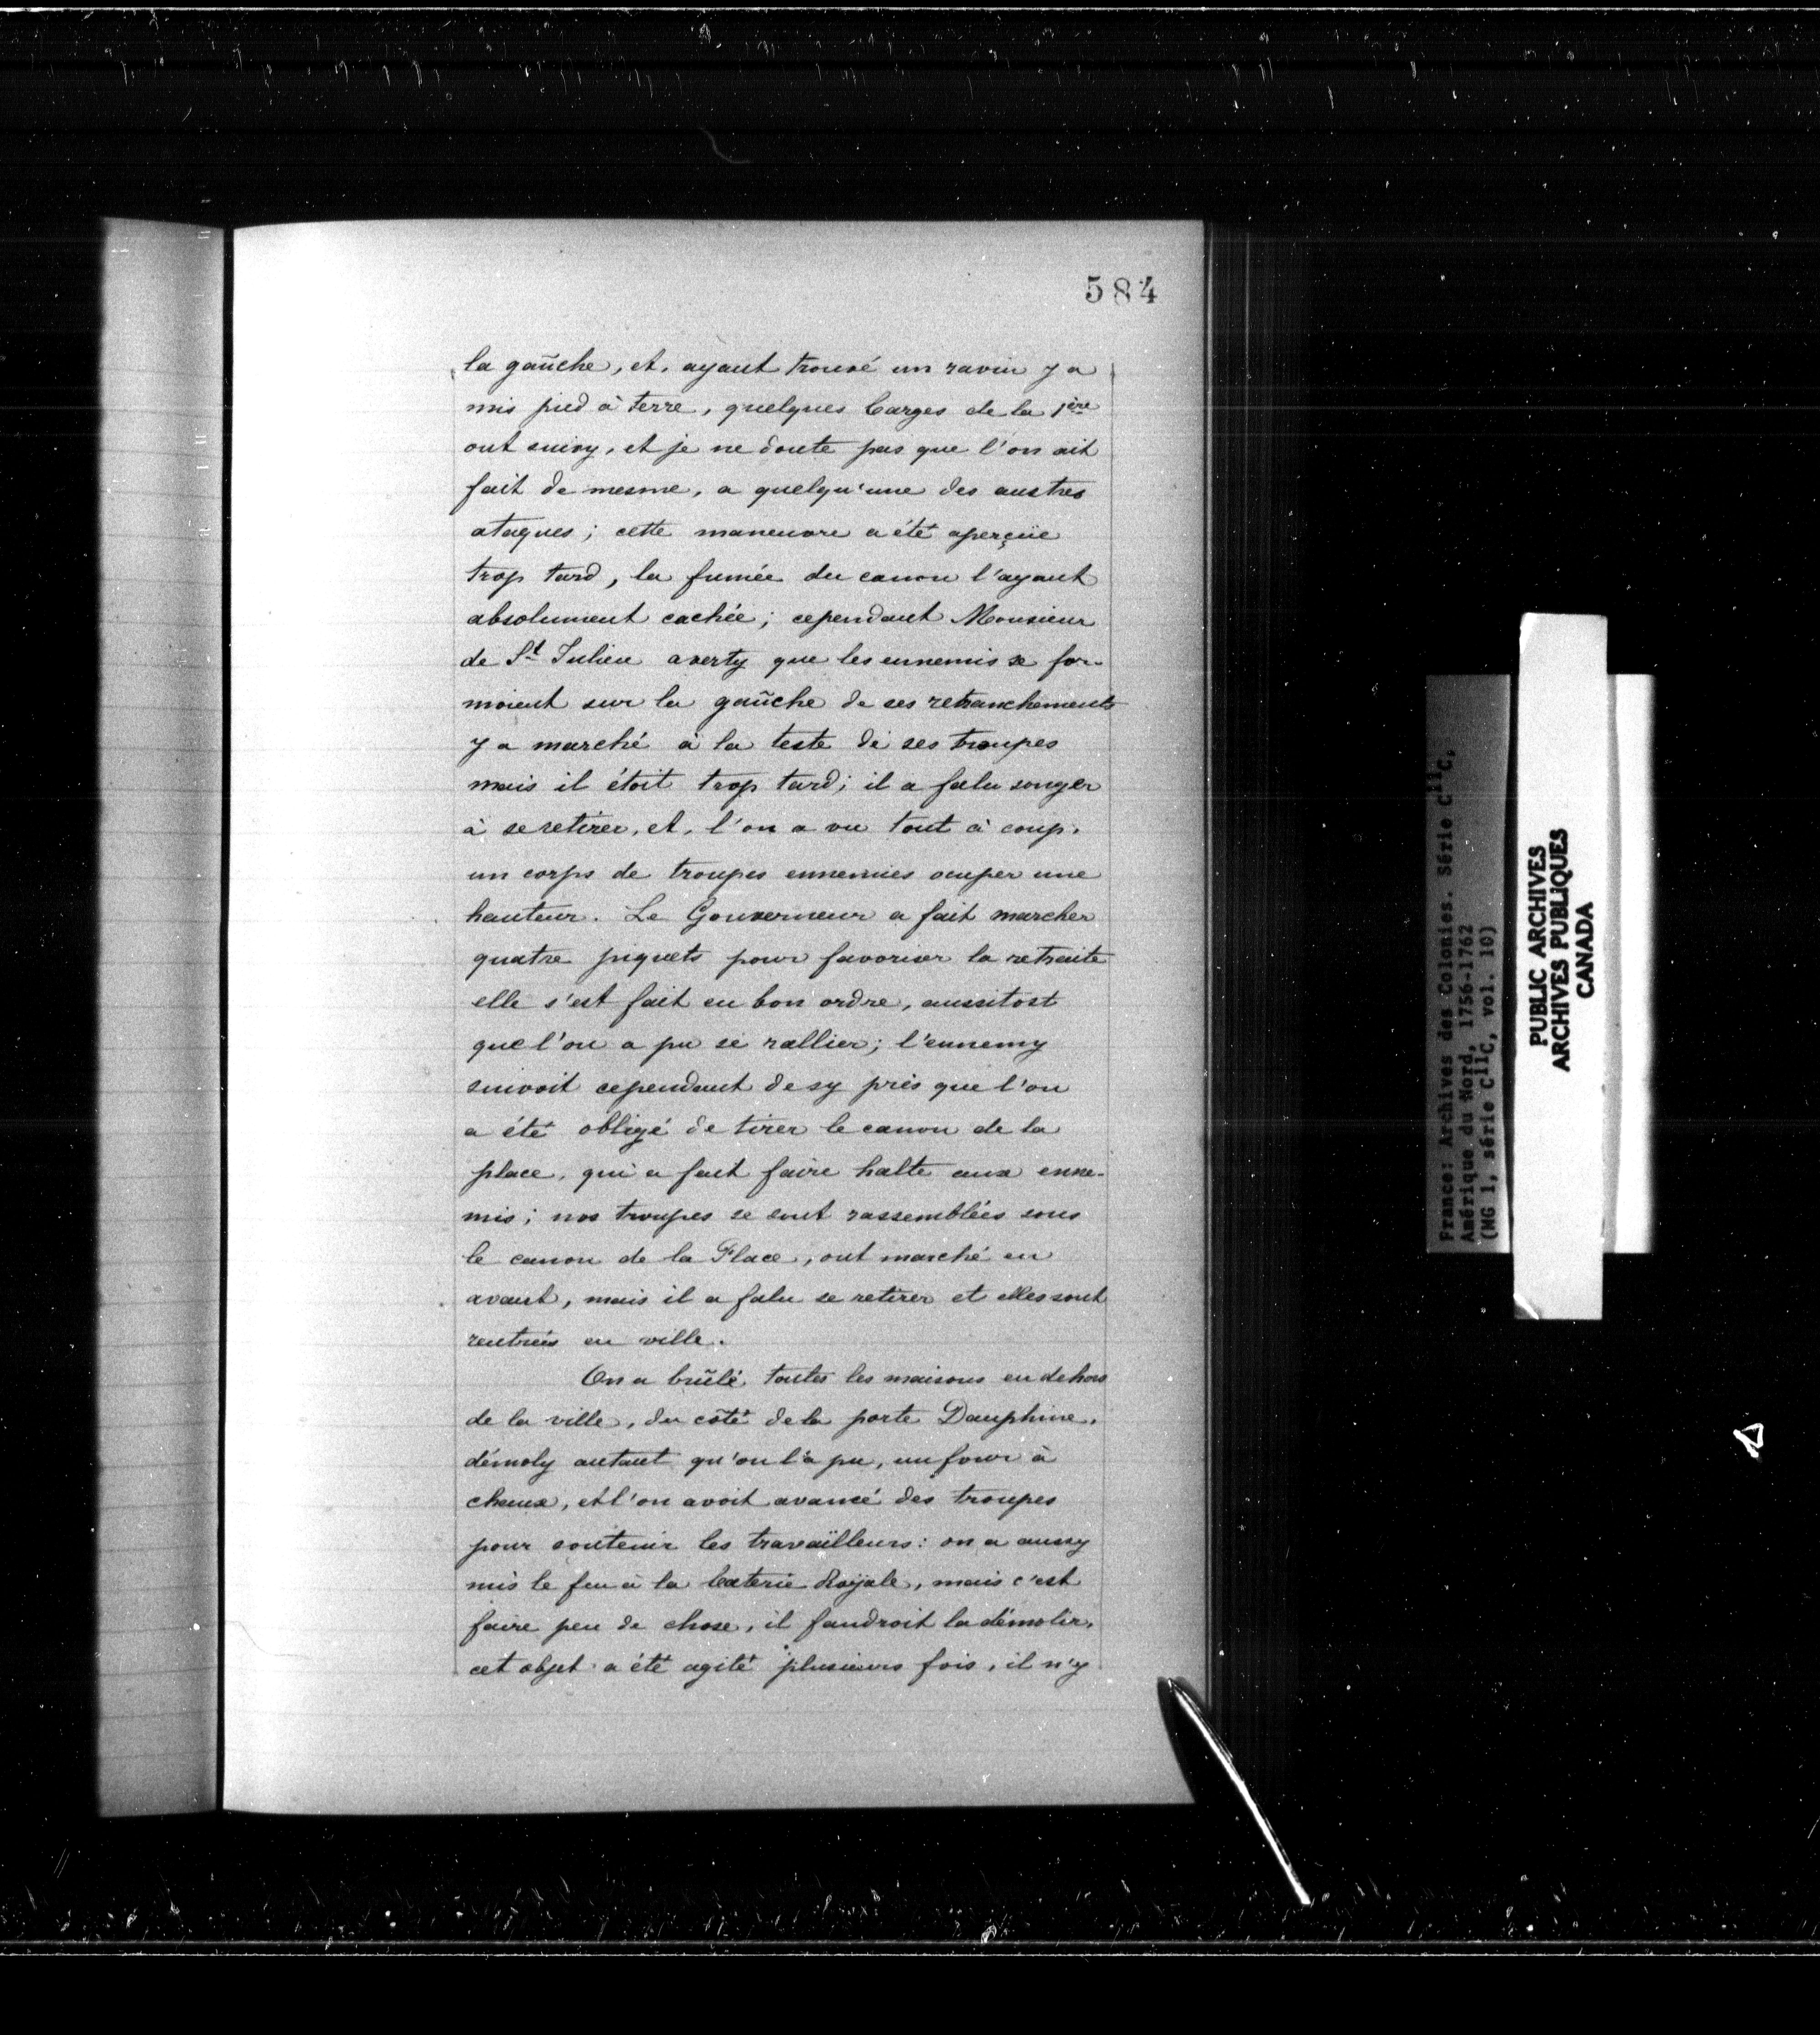 584
la gauche, et, ayant trouvé un ravin y a
mis pied à terre, quelques barges de la 1ère
ont suivy, et je ne doute pas que l'on ait
fait de mesme, a quelqu'une des austres
ataques; cette maneuvre a été aperçüe
trop tard, la fumée du canon l'ayant
absolument cachée; cependant Monsieur
de St Julien averty que les ennemis se for-
moient sur la gauche de ses retranchements
y a marché à la teste de ses troupes
mais il étoit trop tard; il a falu songer
à se retirer, et, l'on a vu tout à coup,
un corps de troupes ennemies ocuper une
hauteur. Le Gouverneur a fait marcher
quatre piquets pour favoriser la retraite
elle s'est fait en bon ordre, aussitost
que l'on a pu se rallier; l'ennemy
suivoit cependant de sy près que l'on
a été obligé de tirer le canon de la
place, qui a fait faire halte aux enne-
mis; nos troupes se sont rassemblées sous
le canon de la Place, ont marché en
avant, mais il a falu se retirer et elles sont
rentrées en ville.
On a brûlé toutes les maisons en dehors
de la ville, du côté de la porte Dauphine,
démoly autant qu'on l'a pu, un four à
chaux, et l'on avoit avancé des troupes
pour soutenir les travailleurs: on a aussy
mis le feu à la baterie Royale, mais c'est
faire peu de chose, il faudroit la démolir,
cet objet a été agité plusieurs fois, il n'y
France: Archives des Colonies. Série C11C,
Amérique du Nord, 1756-1762
(MG 1, série C11C, vol. 10)
PUBLIC ARCHIVES
ARCHIVES PUBLIQUES
CANADA